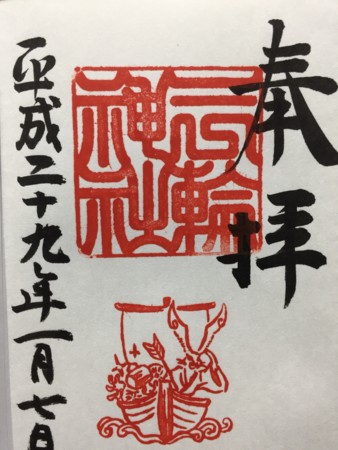 奉拝
三輪
神社
平成二十九年一月七日